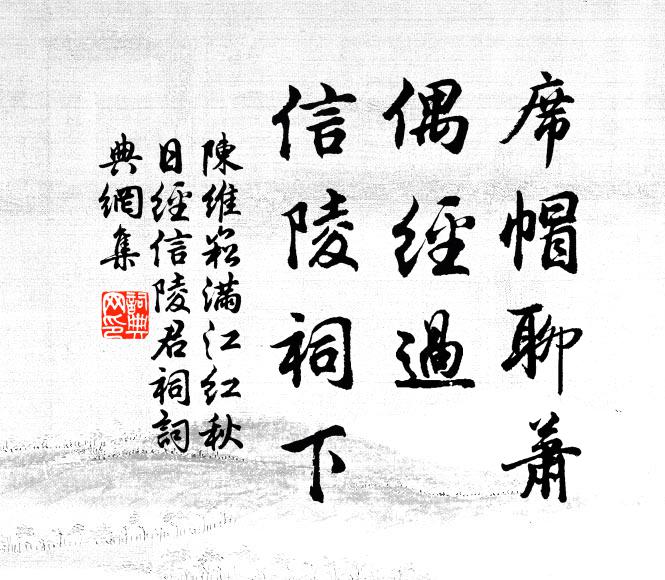 席帽聊蕭
偶經過
信陵祠下
陳維崧滿江紅秋
日經信陵君祠詞
典網集
詞典
网印